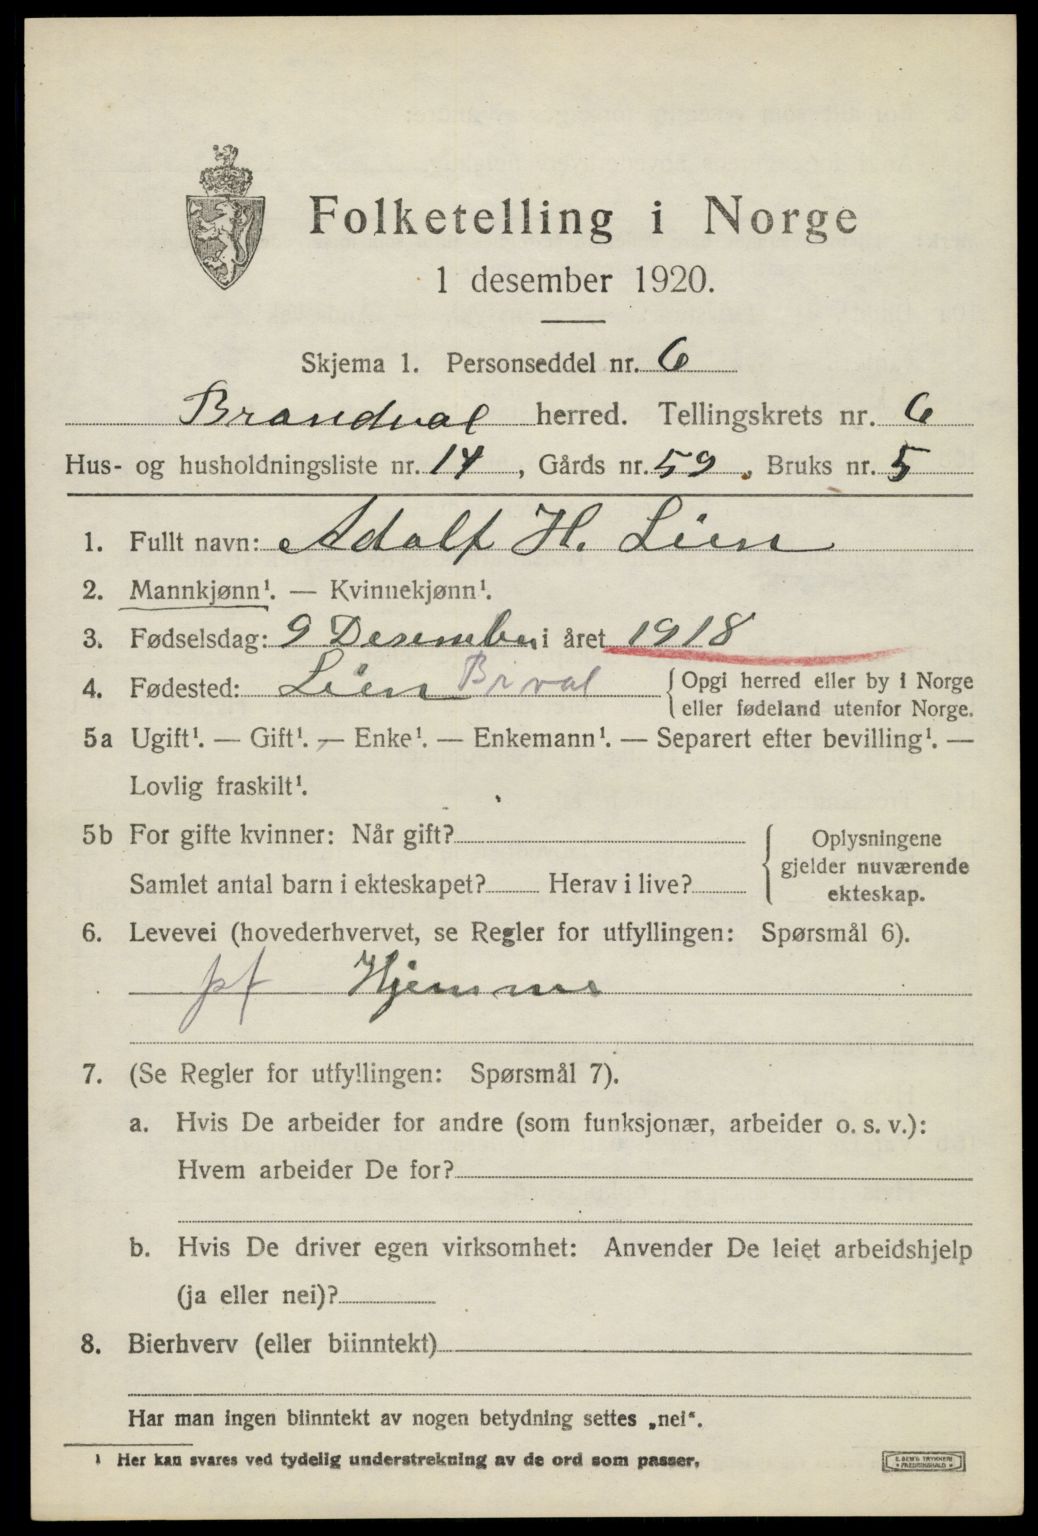 Folketelling i Norge
1 desember 1920.
Skjema 1. Personseddel nr. 6
Brandval herred. Tellingskrets nr. 6
Hus- og husholdningsliste nr. 14, Gårds nr. 59, Bruks nr. 5
1. Fullt navn: Adolf H. Lien
2. Mannkjønn¹. — Kvinnekjønn¹.
3. Fødselsdag: 9 Desember i året 1918
4. Fødested: Lien Br.val {Opgi herred eller by i Norge
eller fødeland utenfor Norge.
5a Ugift¹. — Gift¹. — Enke¹. — Enkemann¹. — Separert efter bevilling¹. —
Lovlig fraskilt¹.
5b For gifte kvinner: Når gift?
Samlet antal barn i ekteskapet? Herav i live?
{Oplysningene
gjelder nuværende
ekteskap.
6. Levevei (hovederhvervet, se Regler for utfyllingen: Spørsmål 6).
pf Hjemme
7. (Se Regler for utfyllingen: Spørsmål 7).
a. Hvis De arbeider for andre (som funksjonær, arbeider o. s. v.):
Hvem arbeider De for?
b. Hvis De driver egen virksomhet: Anvender De leiet arbeidshjelp
(ja eller nei)?
8. Bierhverv (eller biinntekt)
Har man ingen biinntekt av nogen betydning settes „nei“.
¹ Her kan svares ved tydelig understrekning av de ord som passer.
E. SEM'S TRYKKERI
FREDRIKSHALD